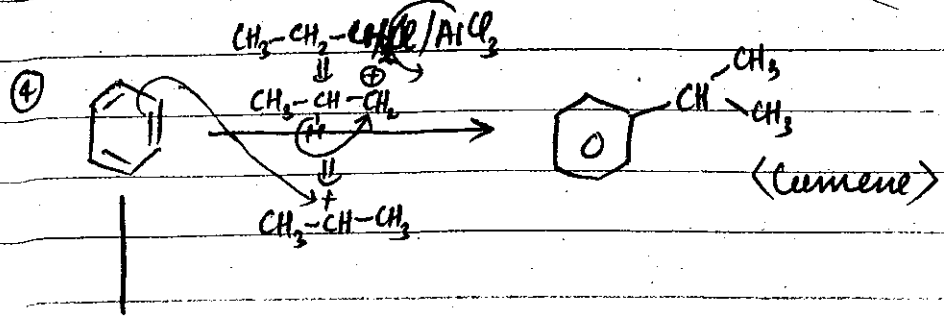 CH₃-CH₂-CH₂Cl/AlCl₃
④
⊕
CH₃-CH-CH₂
H
+
CH₃-CH-CH₃
CH₃
CH
CH₃
<Cumene>